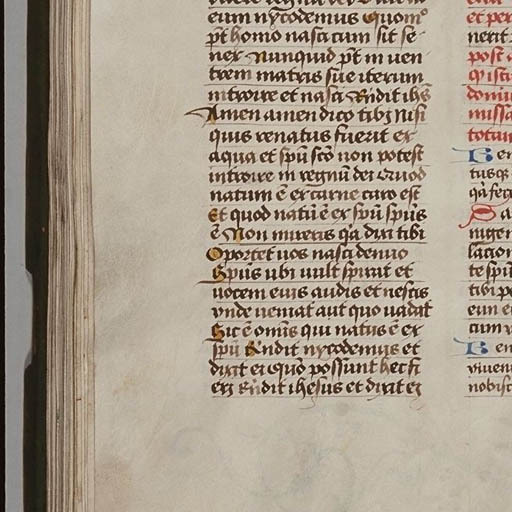 eum nycodemus Quomo
pt homo nasci cum sit se
nex Nunquid pt in uen
trem matris sue iterum
introire et nasci Rndit ihs
Amen amen dico tibi nisi
quis renatus fuerit ex
aqua et spu sco non potest
introire in regnu dei Quod
natum e ex carne caro est
Et quod natu e ex spu spus
e Non mireris qa dixi tibi
Oportet uos nasci denuo
Spus ubi uult spirat et
uocem eius audis et nescis
unde ueniat aut quo uadat
Sic e omis qui natus e ex
spu Rndit nycodemus et
dixit ei Quo possunt hec fi
eri Rndit ihesus et dixit ei
et per
nerit
post
domi
missa
totam
te spu
tibi
eum
cum
nobisc